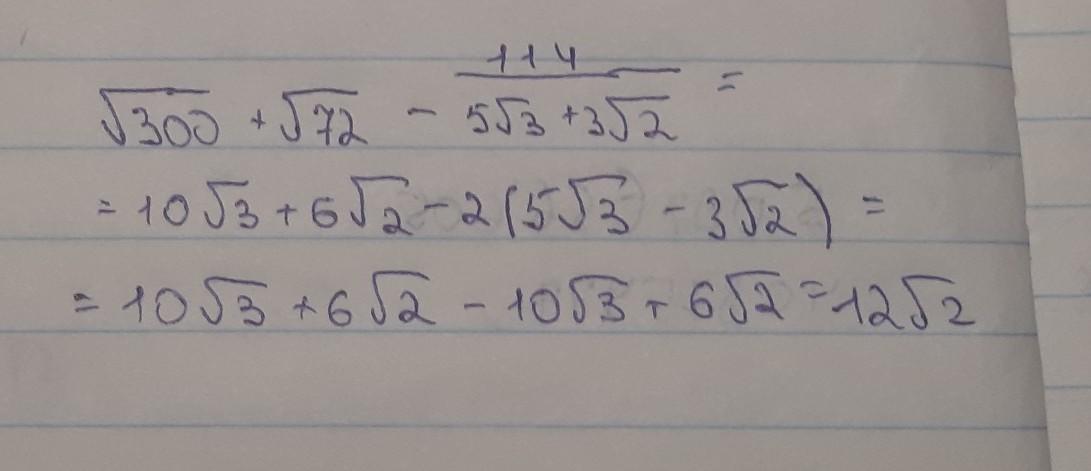 √300 + √72 - 114/(5√3 + 3√2) =
= 10√3 + 6√2 - 2(5√3 - 3√2) =
= 10√3 + 6√2 - 10√3 + 6√2 = 12√2